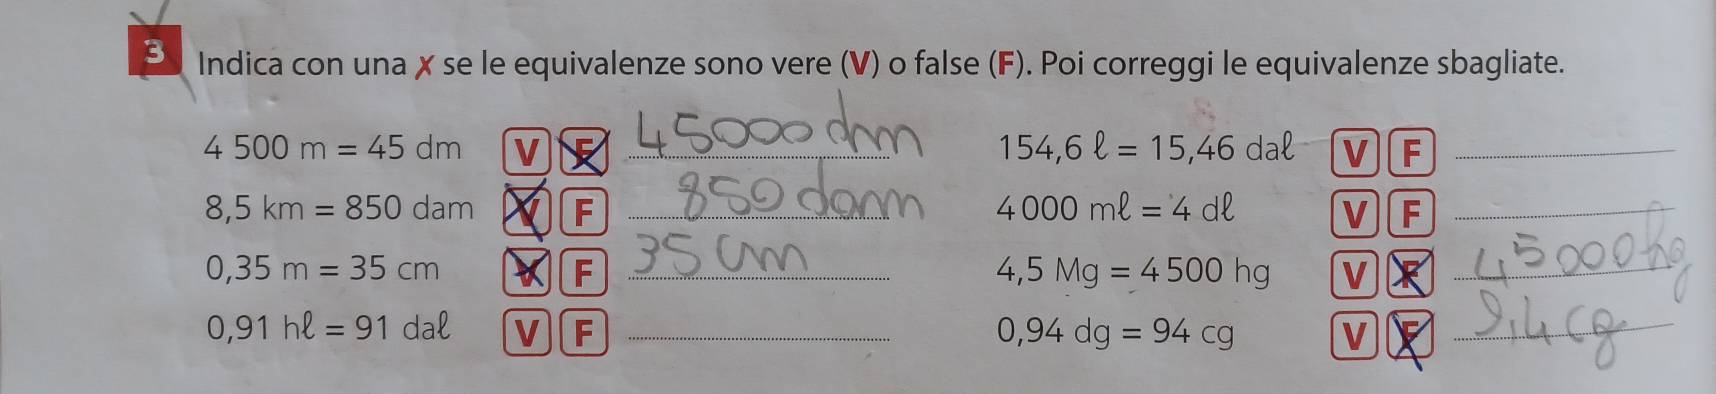 3 Indica con una ✗ se le equivalenze sono vere (V) o false (F). Poi correggi le equivalenze sbagliate.
4 500 m = 45 dm V F 45000 dm
8,5 km = 850 dam V F 850 dam
0,35 m = 35 cm V F 35 cm
0,91 hℓ = 91 daℓ V F
154,6 ℓ = 15,46 daℓ V F
4 000 mℓ = 4 dℓ V F
4,5 Mg = 4 500 hg V F 45000 hg
0,94 dg = 94 cg V F 9,4 cg